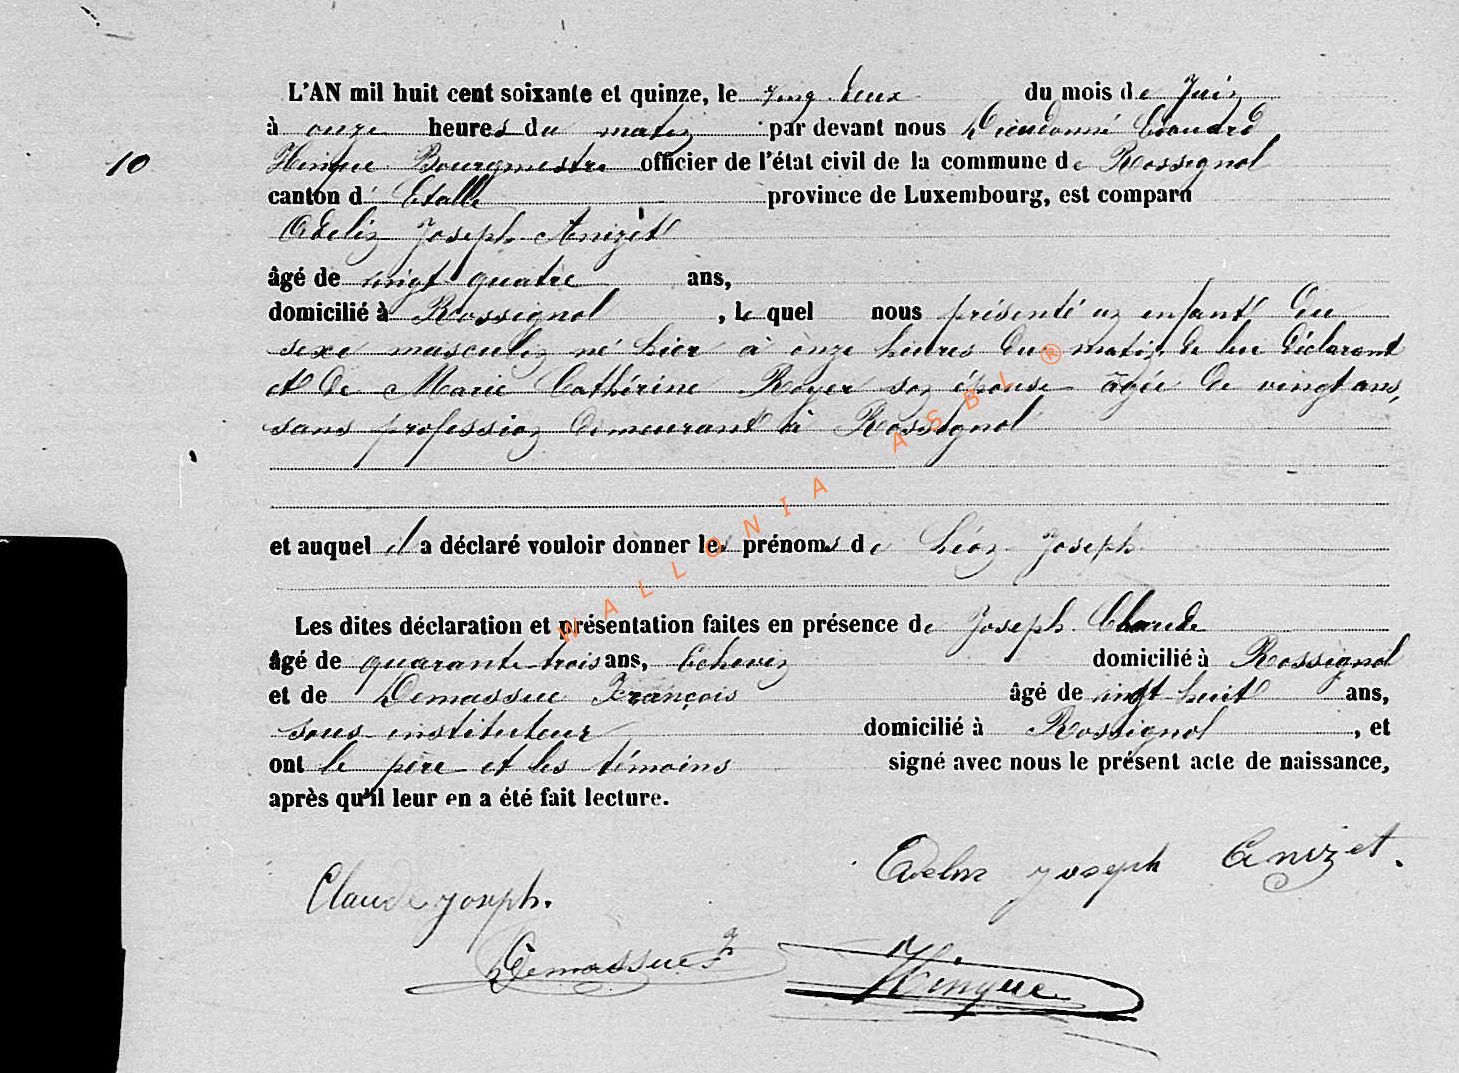 L'AN mil huit cent soixante et quinze, le vingt deux du mois de Juin
à onze heures du matin par devant nous Dieudonné Edouard
10 Hinque Bourgmestre officier de l'état civil de la commune de Rossignol
canton d' Etalle province de Luxembourg, est comparu
Adelin Joseph Anizet
âgé de vingt quatre ans,
domicilié à Rossignol , le quel nous présenté un enfant du
sexe masculin né hier à onze heures du matin, de lui déclarant
et de Marie Cathérine Royer son épouse âgée de vingt ans,
sans profession demeurant à Rossignol
et auquel il a déclaré vouloir donner les prénoms de Léon Joseph
Les dites déclaration et présentation faites en présence de Joseph Claude
âgé de quarante-trois ans, Echevin domicilié à Rossignol
et de Demassue François âgé de vingt huit ans,
sous-instituteur domicilié à Rossignol , et
ont le père et les témoins signé avec nous le présent acte de naissance,
après qu'il leur en a été fait lecture.
Adelin Joseph Anizet.
Claude Joseph.
Demassue F
Hinque
WALLONIA ASBL ®